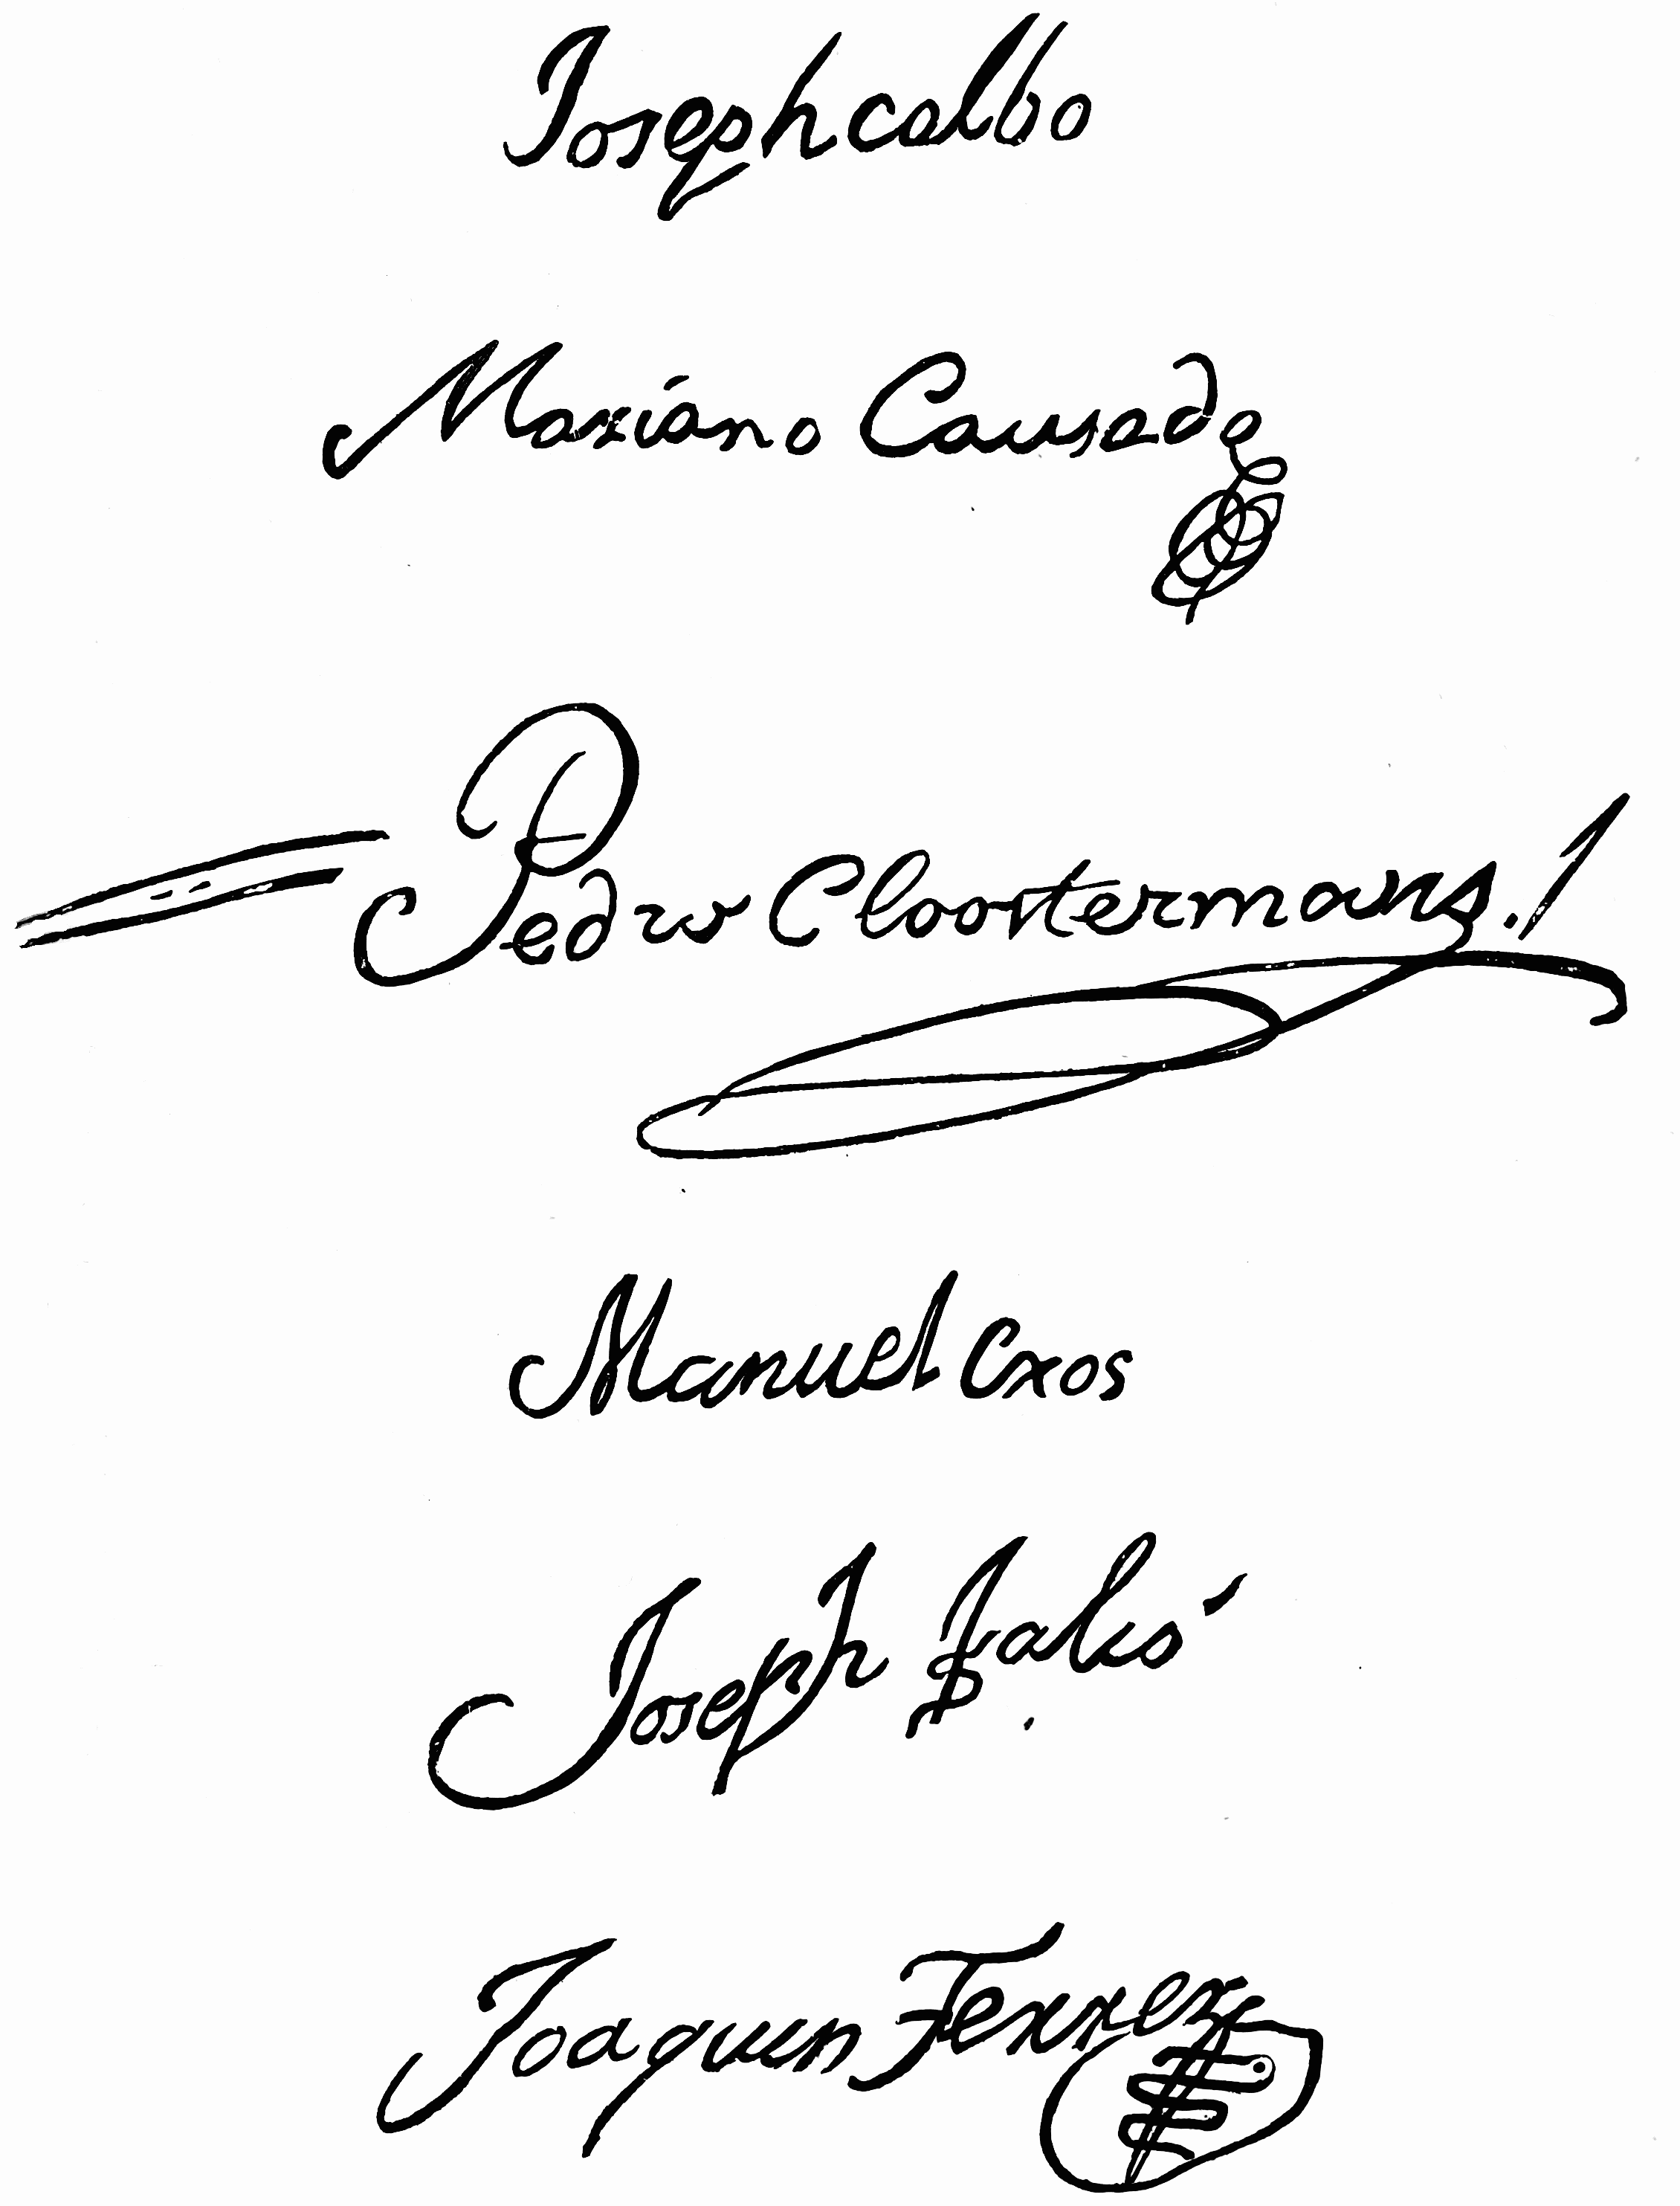 Joseph calbo
Mariano Causada
Pedro Cloostermans.
Manuel Cros
Joseph
Joaquin Ferrer